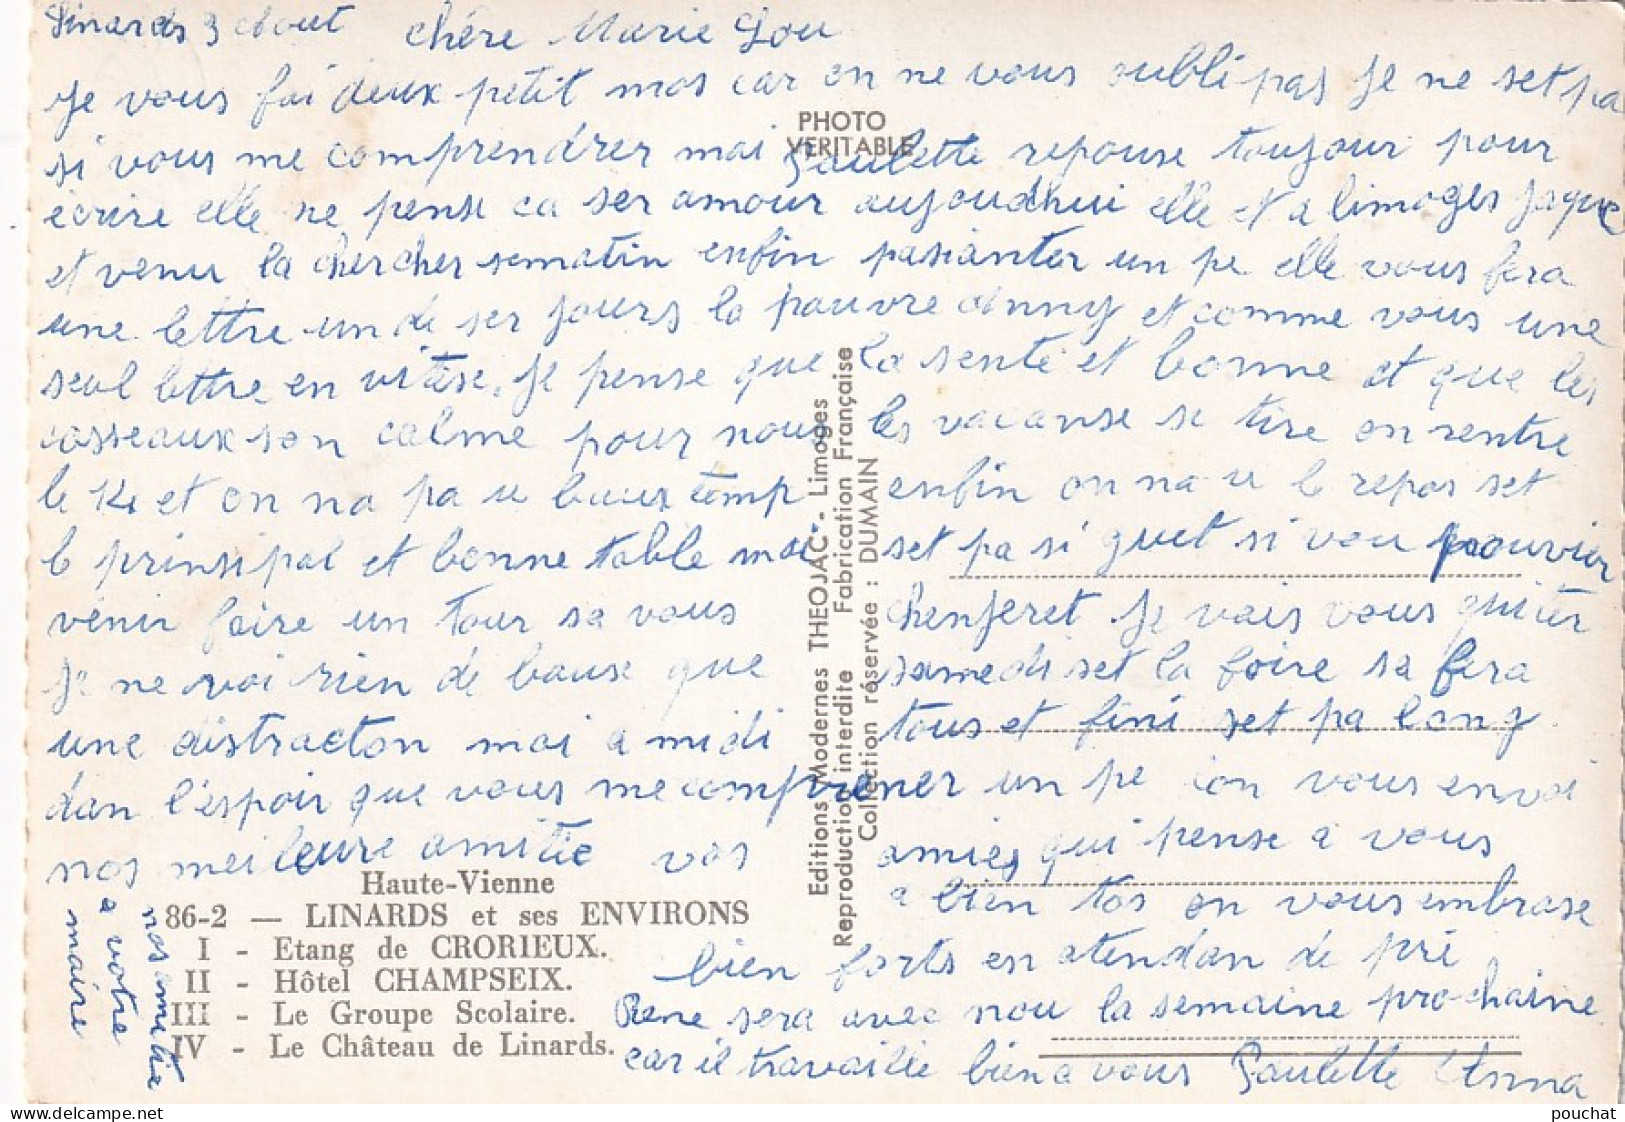 Linards 3 Aout chére Marie Lou
je vous fai deux petit mos car on ne vous oubli pas je ne set pa
si vous me comprendrer moi Paulette repouse toujour pour
écrire elle ne pense ca ser amour aujoudhui elle et a limoges jaque
et venu la chercher sematin enfin pasianter un pe elle vous fera
une lettre un de ser jours la pauvre anny et comme vous une
seul lettre en vitese. je pense que la sente et bonne et que les
casseaux son calme pour nous les vacanse se tire on rentre
le 14 et on na pa u baux temp enfin on na u le repos set
le prinsipal et bonne table moi set pa si guet si vou pouvier
venir faire un tour sa vous chenjeret je vais vous quiter
je ne voi rien de baux que samedi set la foire sa fera
une distracton moi a midi tous et fini set pa long
dan l'espoir que vous me comprener un pe ion vous envoi
nos meileure amitie vos amies qui pense a vous
a bien tos on vous embrase
bien forts en atendan de pri
Rene sera avec nou la semaine prochaine
car il travaille bien a vous Paulette Anna
nos amitie
a votre
maire
PHOTO
VERITABLE
Editions Modernes THEOJAC - Limoges
Reproduction interdite Fabrication Française
Collection réservée : DUMAIN
Haute-Vienne
86-2 — LINARDS et ses ENVIRONS
I - Etang de CRORIEUX.
II - Hôtel CHAMPSEIX.
III - Le Groupe Scolaire.
IV - Le Château de Linards.
pouchat